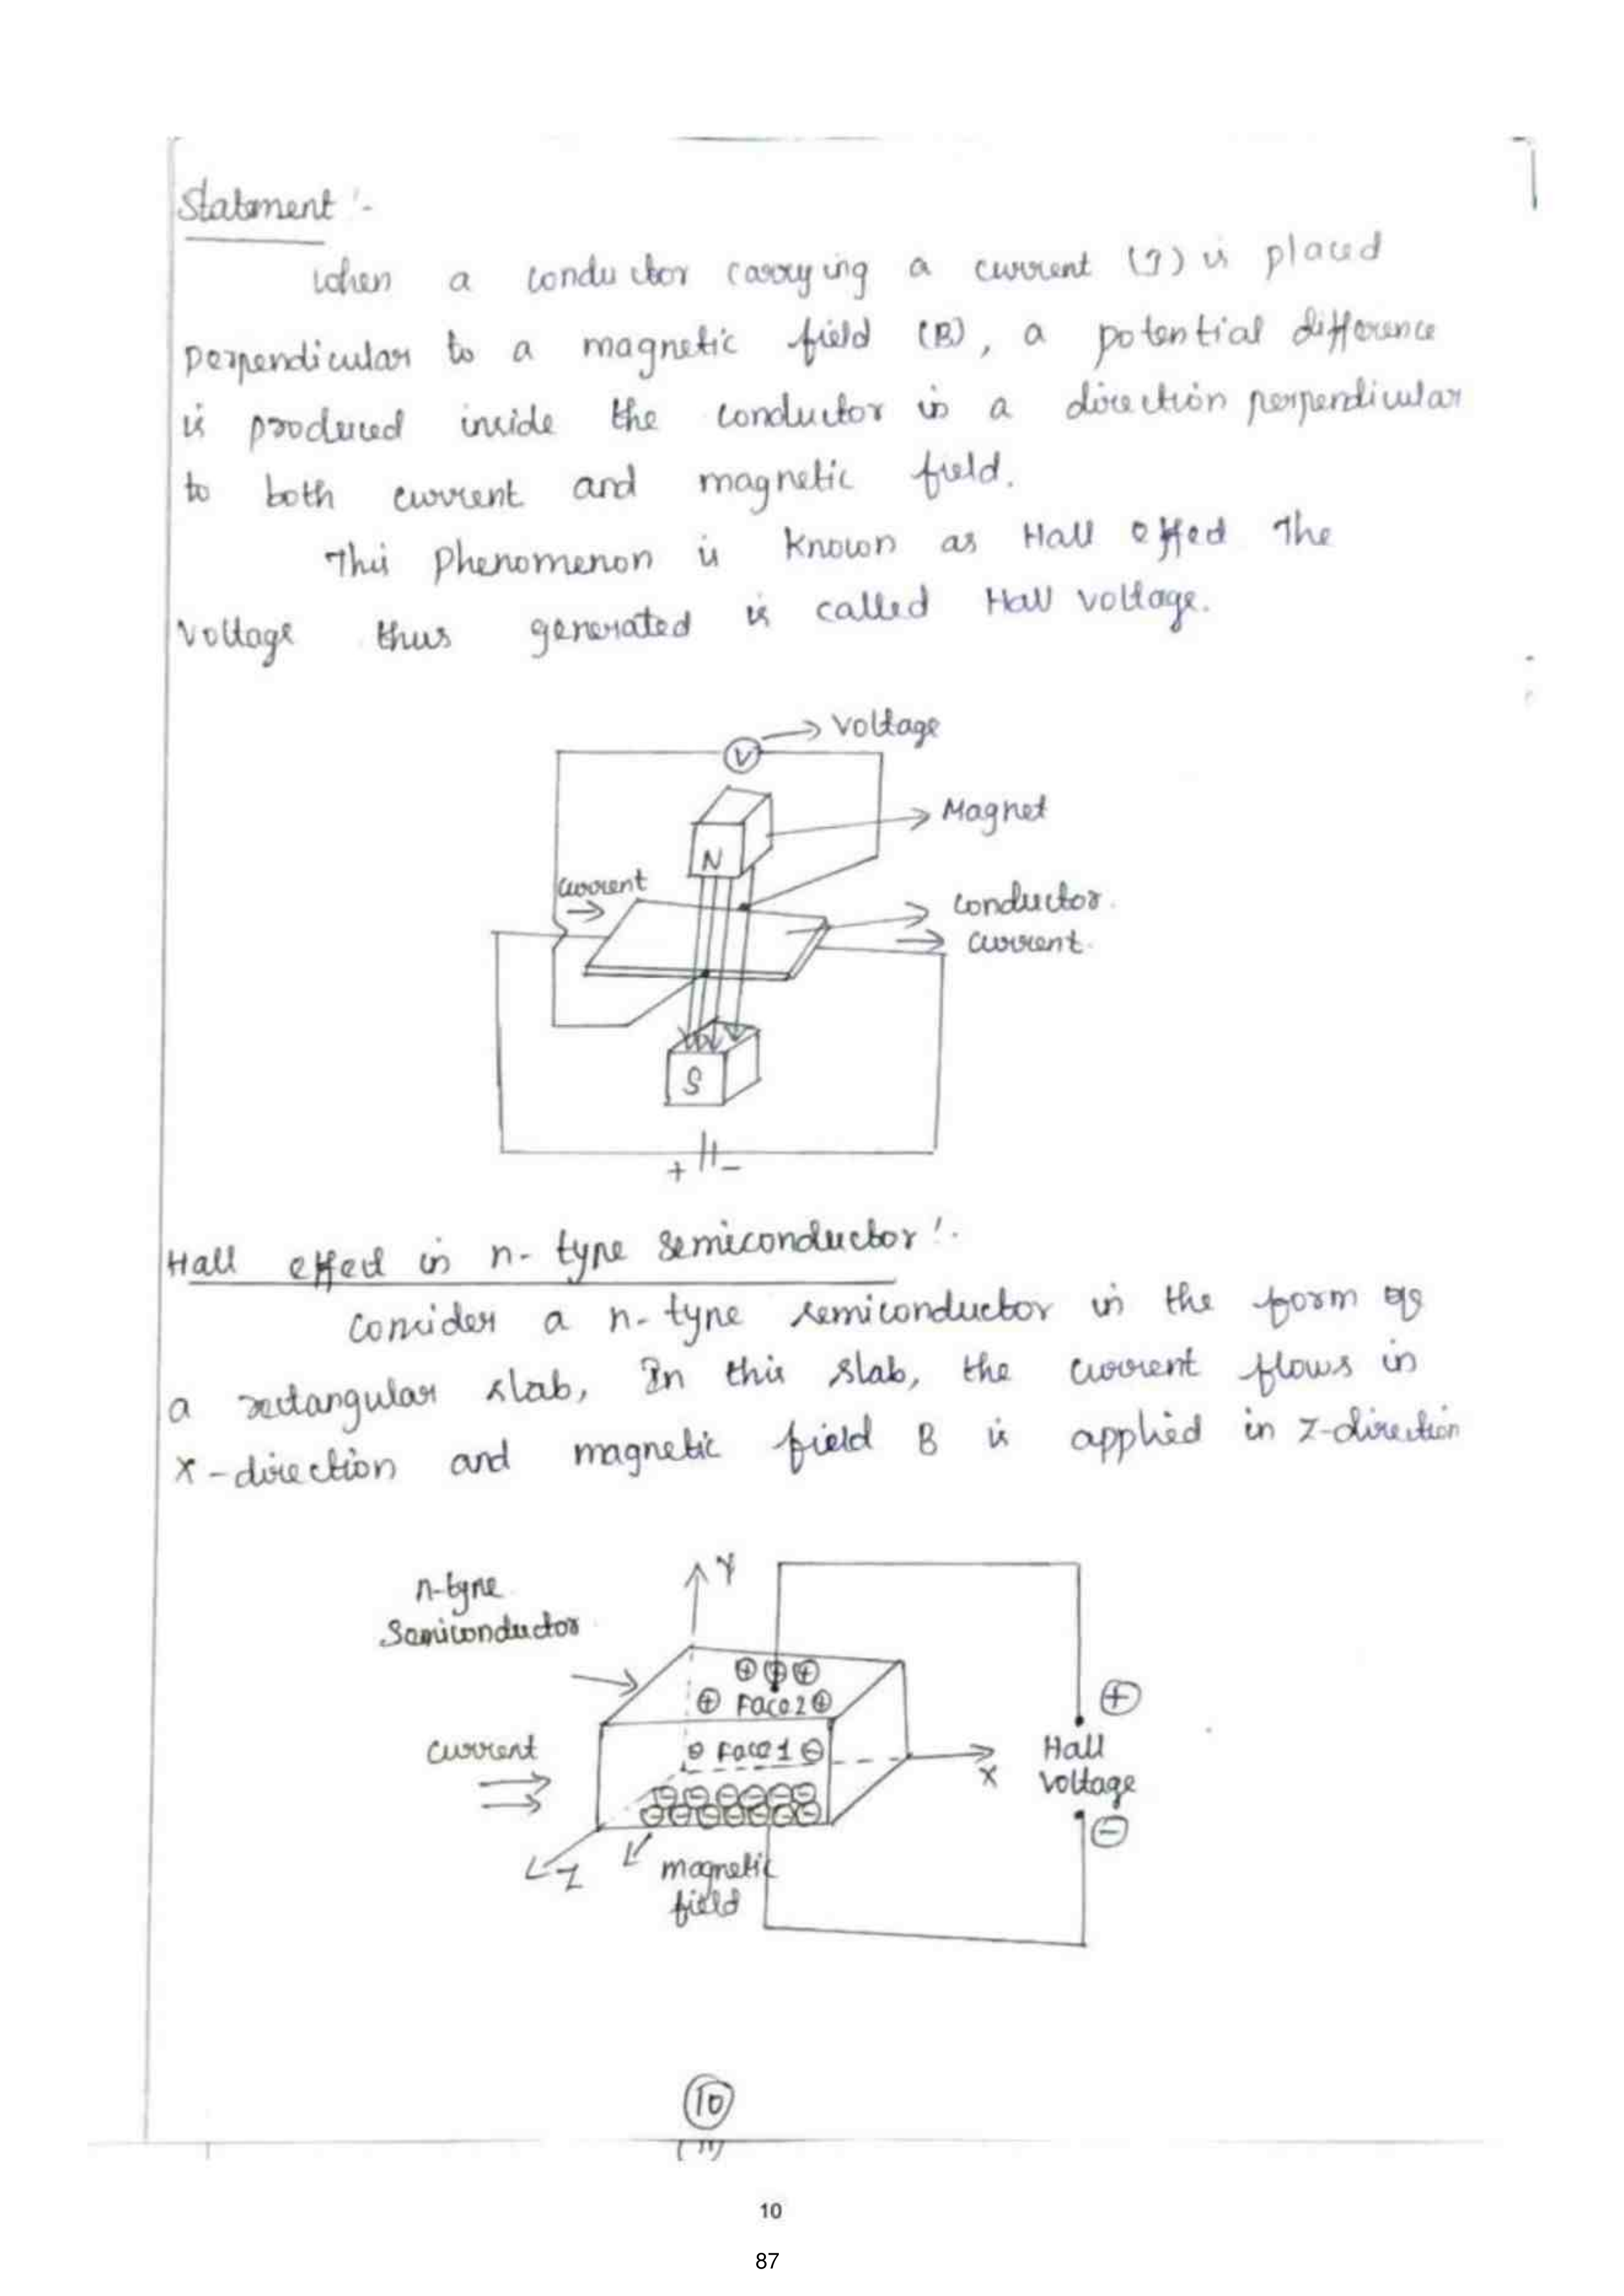 Statement :-
When a conductor carrying a current (I) is placed
perpendicular to a magnetic field (B), a potential difference
is produced inside the conductor in a direction perpendicular
to both current and magnetic field.
This Phenomenon is known as Hall effect The
Voltage thus generated is called Hall voltage.
V
Voltage
Magnet
N
current
conductor.
current.
S
+ -
Hall effect in n-type semiconductor :-
Consider a n-type semiconductor in the form of
a rectangular slab, In this slab, the current flows in
X-direction and magnetic field B is applied in Z-direction
Y
n-type
Semiconductor
+ + +
+ Face 2 +
+
current
- Face 1 -
X
Hall
voltage
- - - - - -
- - - - - - -
-
Z
magnetic
field
10
10
87